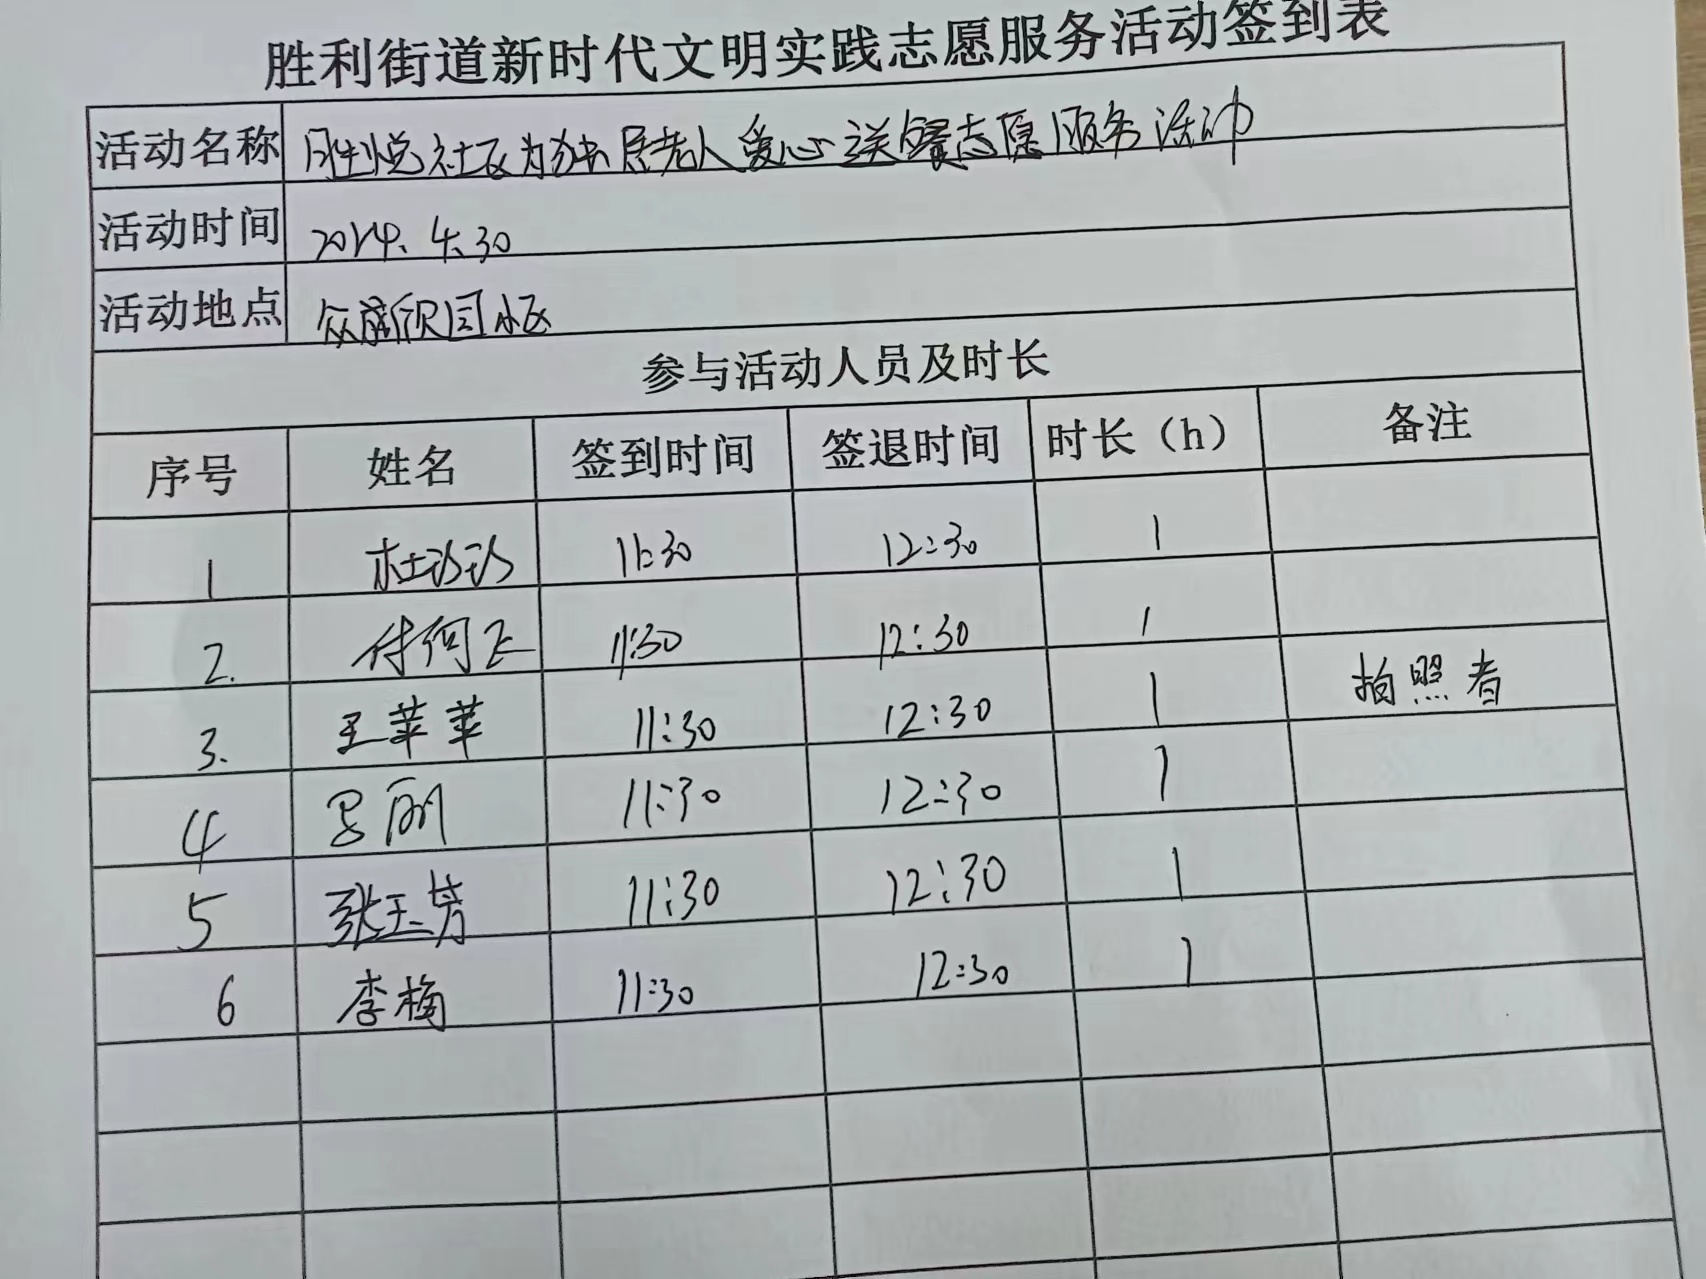 胜利街道新时代文明实践志愿服务活动签到表
活动名称 胜悦社区为独居老人爱心送餐志愿服务活动
活动时间 2024.4.30
活动地点 众盛欣园小区
参与活动人员及时长
序号 姓名 签到时间 签退时间 时长（h） 备注
1 杜 11:30 12:30 1
2. 付何飞 11:30 12:30 1
3. 王苹苹 11:30 12:30 1 拍照者
4 罗丽 11:30 12:30 1
5 张玉芳 11:30 12:30 1
6 李梅 11:30 12:30 1